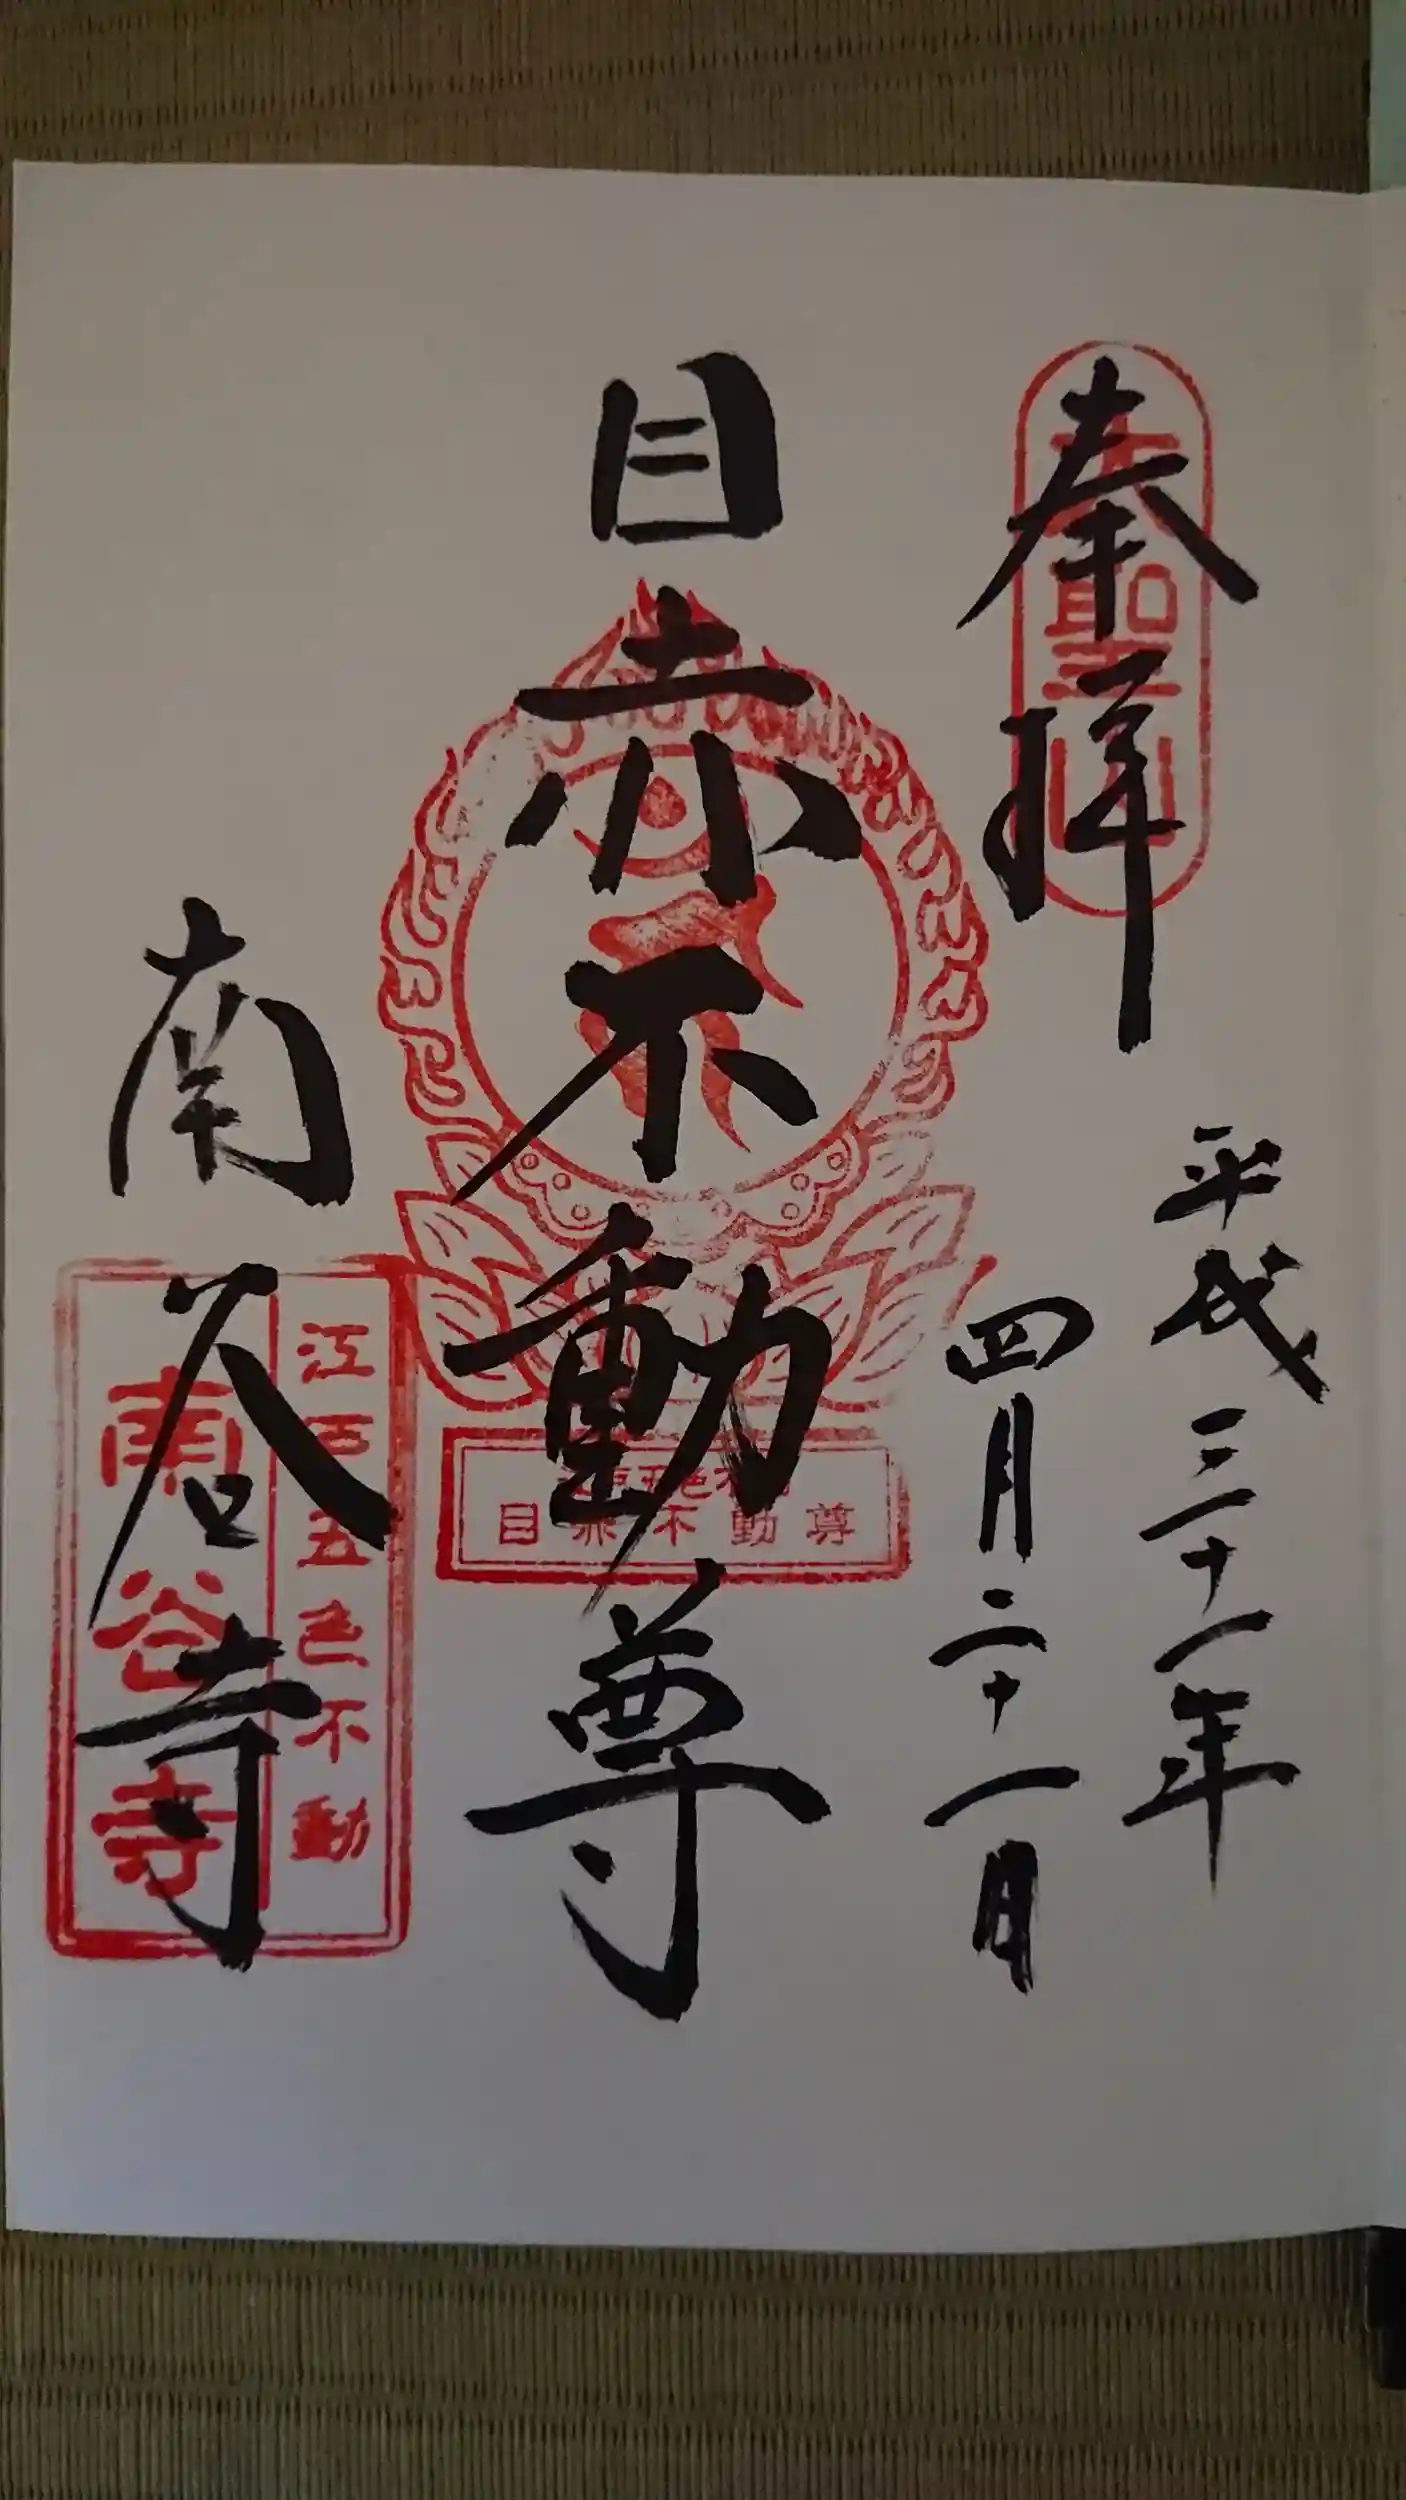 奉拝
大聖山
平成三十一年
四月二十一日
目赤不動尊
目赤不動尊
南谷寺
江戸五色不動
南谷寺